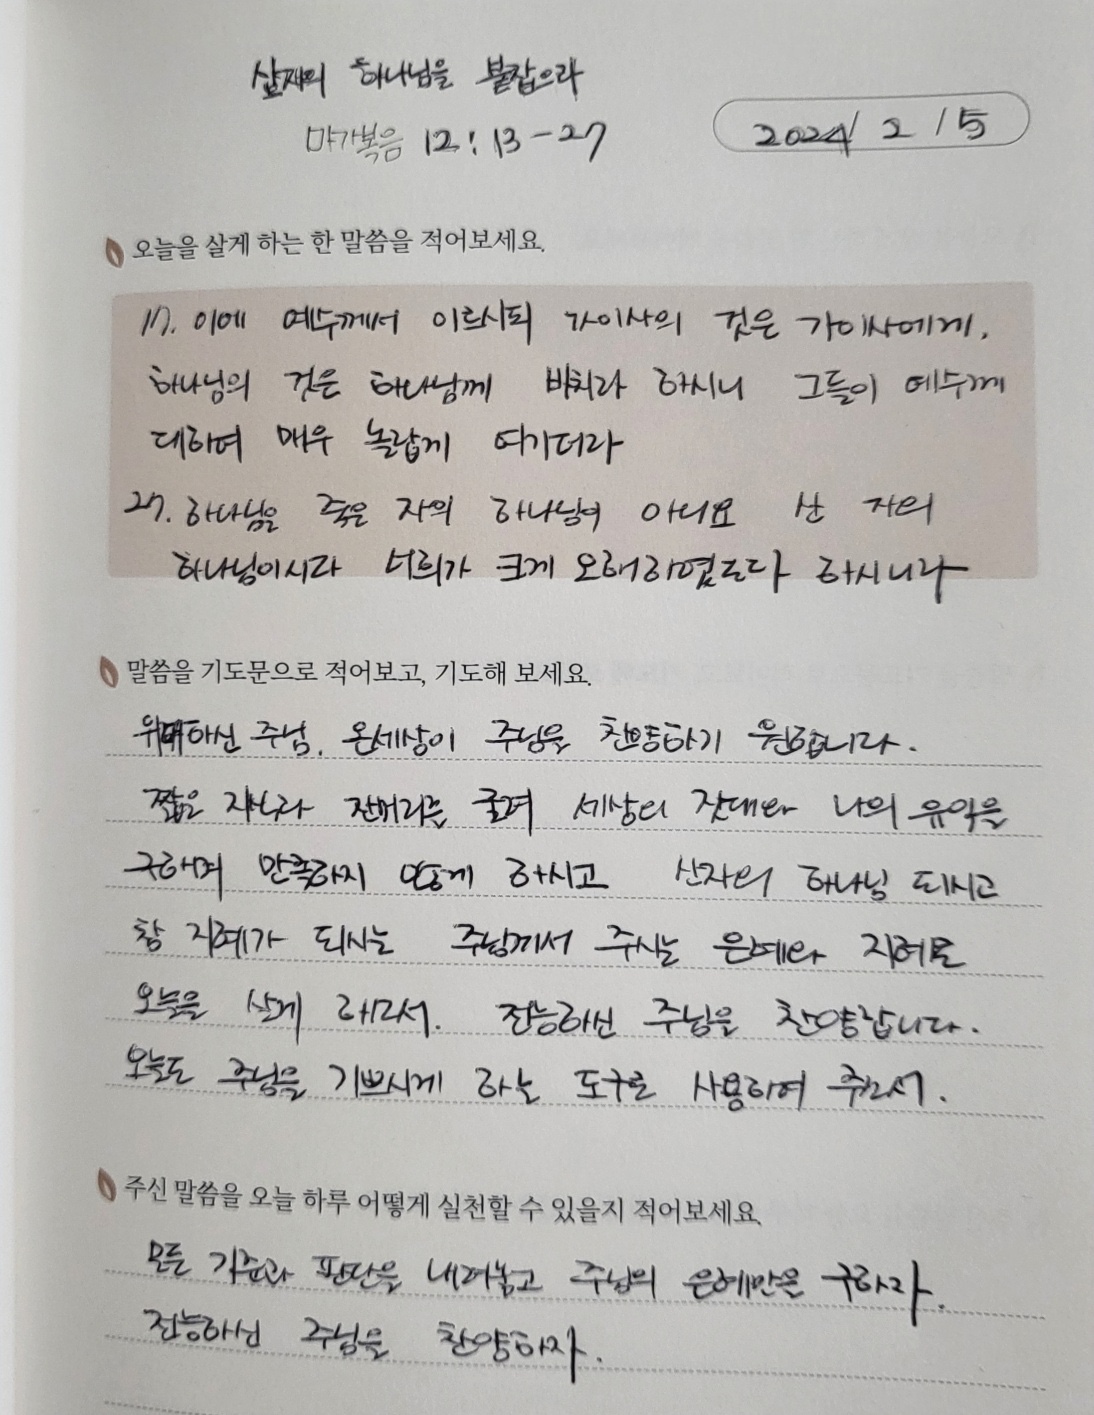 살재의 하나님을 붙잡으라
마가복음 12:13-27
2024/2/5
오늘을 살게 하는 한 말씀을 적어보세요.
17. 이에 예수께서 이르시되 가이사의 것은 가이사에게,
하나님의 것은 하나님께 바치라 하시니 그들이 예수께
대하여 매우 놀랍게 여기더라
27. 하나님은 죽은 자의 하나님이 아니요 산 자의
하나님이시라 너희가 크게 오해하였도다 하시니라
말씀을 기도문으로 적어보고, 기도해 보세요.
위대하신 주님, 온세상이 주님을 찬양하기 원합니다.
짧은 지식과 잔머리를 굴려 세상의 잣대와 나의 유익을
구하며 만족하지 않게 하시고 산자의 하나님 되시고
참 지혜가 되시는 주님께서 주시는 은혜와 지혜로
오늘을 살게 하소서. 전능하신 주님을 찬양합니다.
오늘도 주님을 기쁘시게 하는 도구로 사용하여 주소서.
주신 말씀을 오늘 하루 어떻게 실천할 수 있을지 적어보세요.
모든 기준과 판단을 내려놓고 주님의 은혜만을 구하자.
전능하신 주님을 찬양하자.